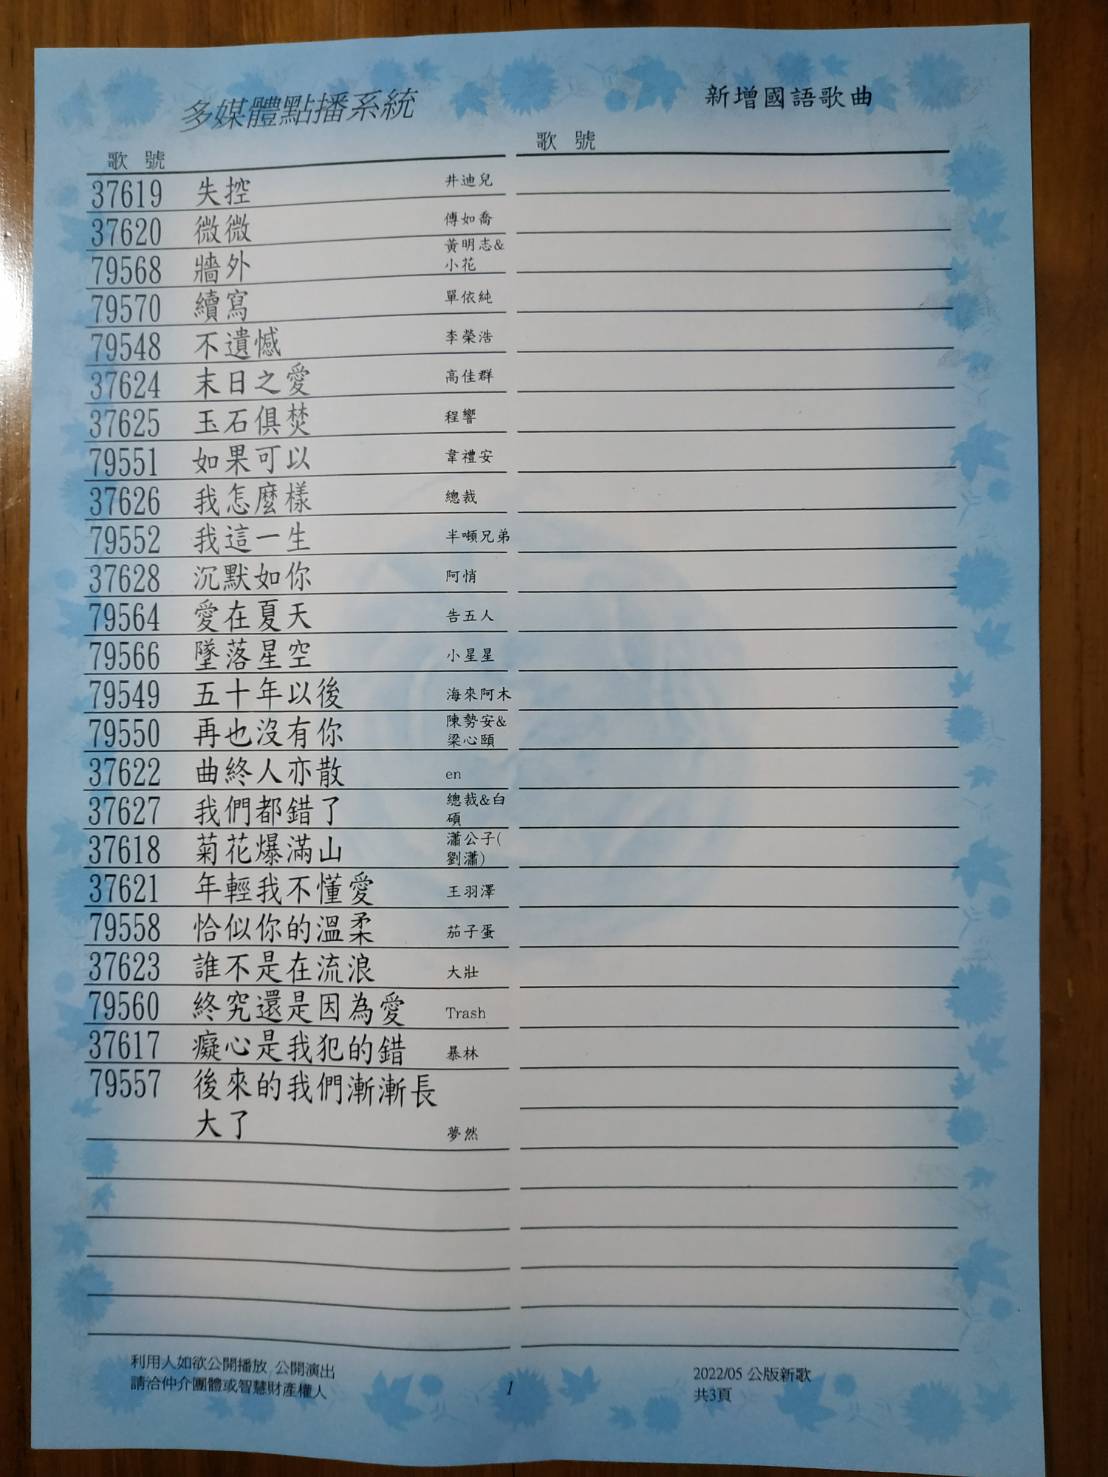 多媒體點播系統
新增國語歌曲
歌 號
歌 號
37619 失控 井迪兒
37620 微微 傅如喬
79568 牆外 黃明志&
小花
79570 續寫 單依純
79548 不遺憾 李榮浩
37624 末日之愛 高佳群
37625 玉石俱焚 程響
79551 如果可以 韋禮安
37626 我怎麼樣 總裁
79552 我這一生 半噸兄弟
37628 沉默如你 阿悄
79564 愛在夏天 告五人
79566 墜落星空 小星星
79549 五十年以後 海來阿木
79550 再也沒有你 陳勢安&
梁心頤
37622 曲終人亦散 en
37627 我們都錯了 總裁&白
碩
37618 菊花爆滿山 瀟公子(
劉瀟)
37621 年輕我不懂愛 王羽澤
79558 恰似你的溫柔 茄子蛋
37623 誰不是在流浪 大壯
79560 終究還是因為愛 Trash
37617 癡心是我犯的錯 暴林
79557 後來的我們漸漸長
大了 夢然
利用人如欲公開播放 公開演出
請洽仲介團體或智慧財產權人
1
2022/05 公版新歌
共3頁